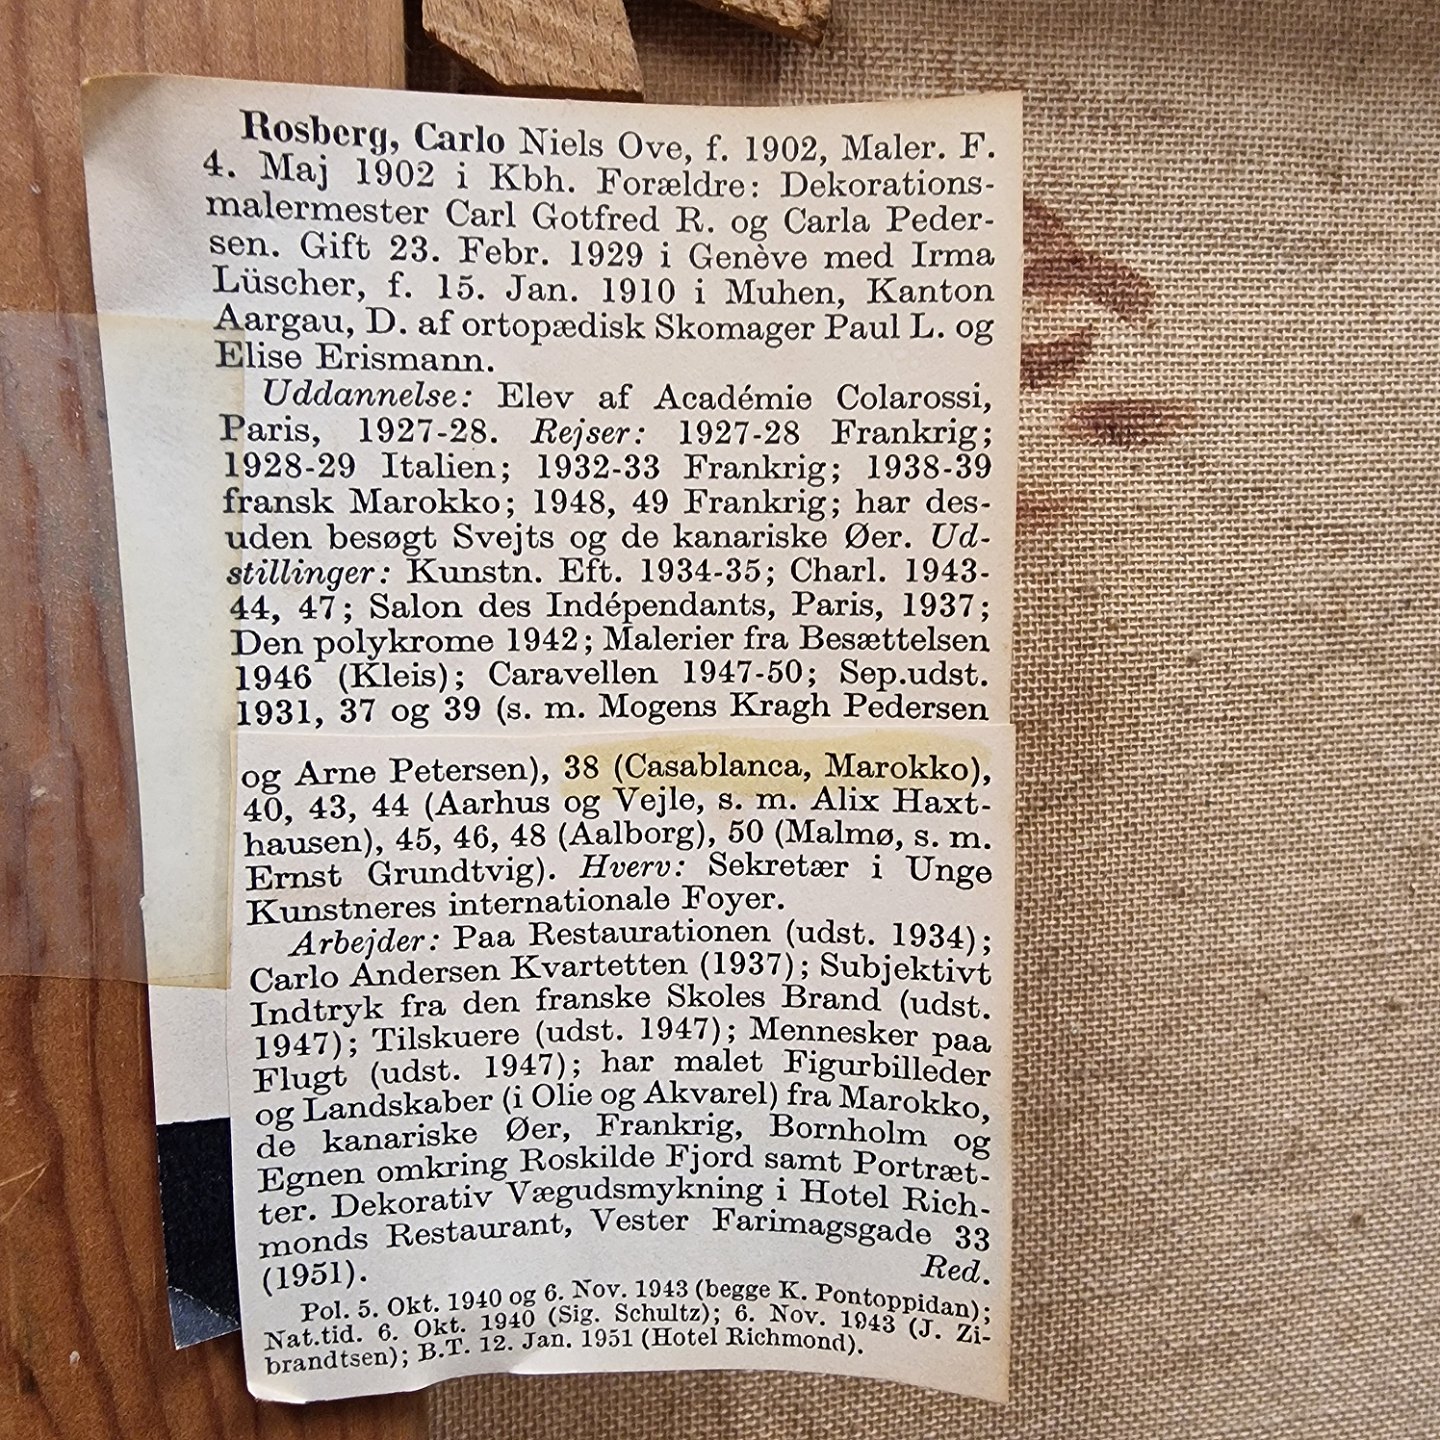 Rosberg, Carlo Niels Ove, f. 1902, Maler. F.
4. Maj 1902 i Kbh. Forældre: Dekorations-
malermester Carl Gotfred R. og Carla Peder-
sen. Gift 23. Febr. 1929 i Genève med Irma
Lüscher, f. 15. Jan. 1910 i Muhen, Kanton
Aargau, D. af ortopædisk Skomager Paul L. og
Elise Erismann.
Uddannelse: Elev af Académie Colarossi,
Paris, 1927-28. Rejser: 1927-28 Frankrig;
1928-29 Italien; 1932-33 Frankrig; 1938-39
fransk Marokko; 1948, 49 Frankrig; har des-
uden besøgt Svejts og de kanariske Øer. Ud-
stillinger: Kunstn. Eft. 1934-35; Charl. 1943-
44, 47; Salon des Indépendants, Paris, 1937;
Den polykrome 1942; Malerier fra Besættelsen
1946 (Kleis); Caravellen 1947-50; Sep.udst.
1931, 37 og 39 (s. m. Mogens Kragh Pedersen
og Arne Petersen), 38 (Casablanca, Marokko),
40, 43, 44 (Aarhus og Vejle, s. m. Alix Haxt-
hausen), 45, 46, 48 (Aalborg), 50 (Malmø, s. m.
Ernst Grundtvig). Hverv: Sekretær i Unge
Kunstneres internationale Foyer.
Arbejder: Paa Restaurationen (udst. 1934);
Carlo Andersen Kvartetten (1937); Subjektivt
Indtryk fra den franske Skoles Brand (udst.
1947); Tilskuere (udst. 1947); Mennesker paa
Flugt (udst. 1947); har malet Figurbilleder
og Landskaber (i Olie og Akvarel) fra Marokko,
de kanariske Øer, Frankrig, Bornholm og
Egnen omkring Roskilde Fjord samt Portræt-
ter. Dekorativ Vægudsmykning i Hotel Rich-
monds Restaurant, Vester Farimagsgade 33
(1951). Red.
Pol. 5. Okt. 1940 og 6. Nov. 1943 (begge K. Pontoppidan);
Nat.tid. 6. Okt. 1940 (Sig. Schultz); 6. Nov. 1943 (J. Zi-
brandtsen); B.T. 12. Jan. 1951 (Hotel Richmond).